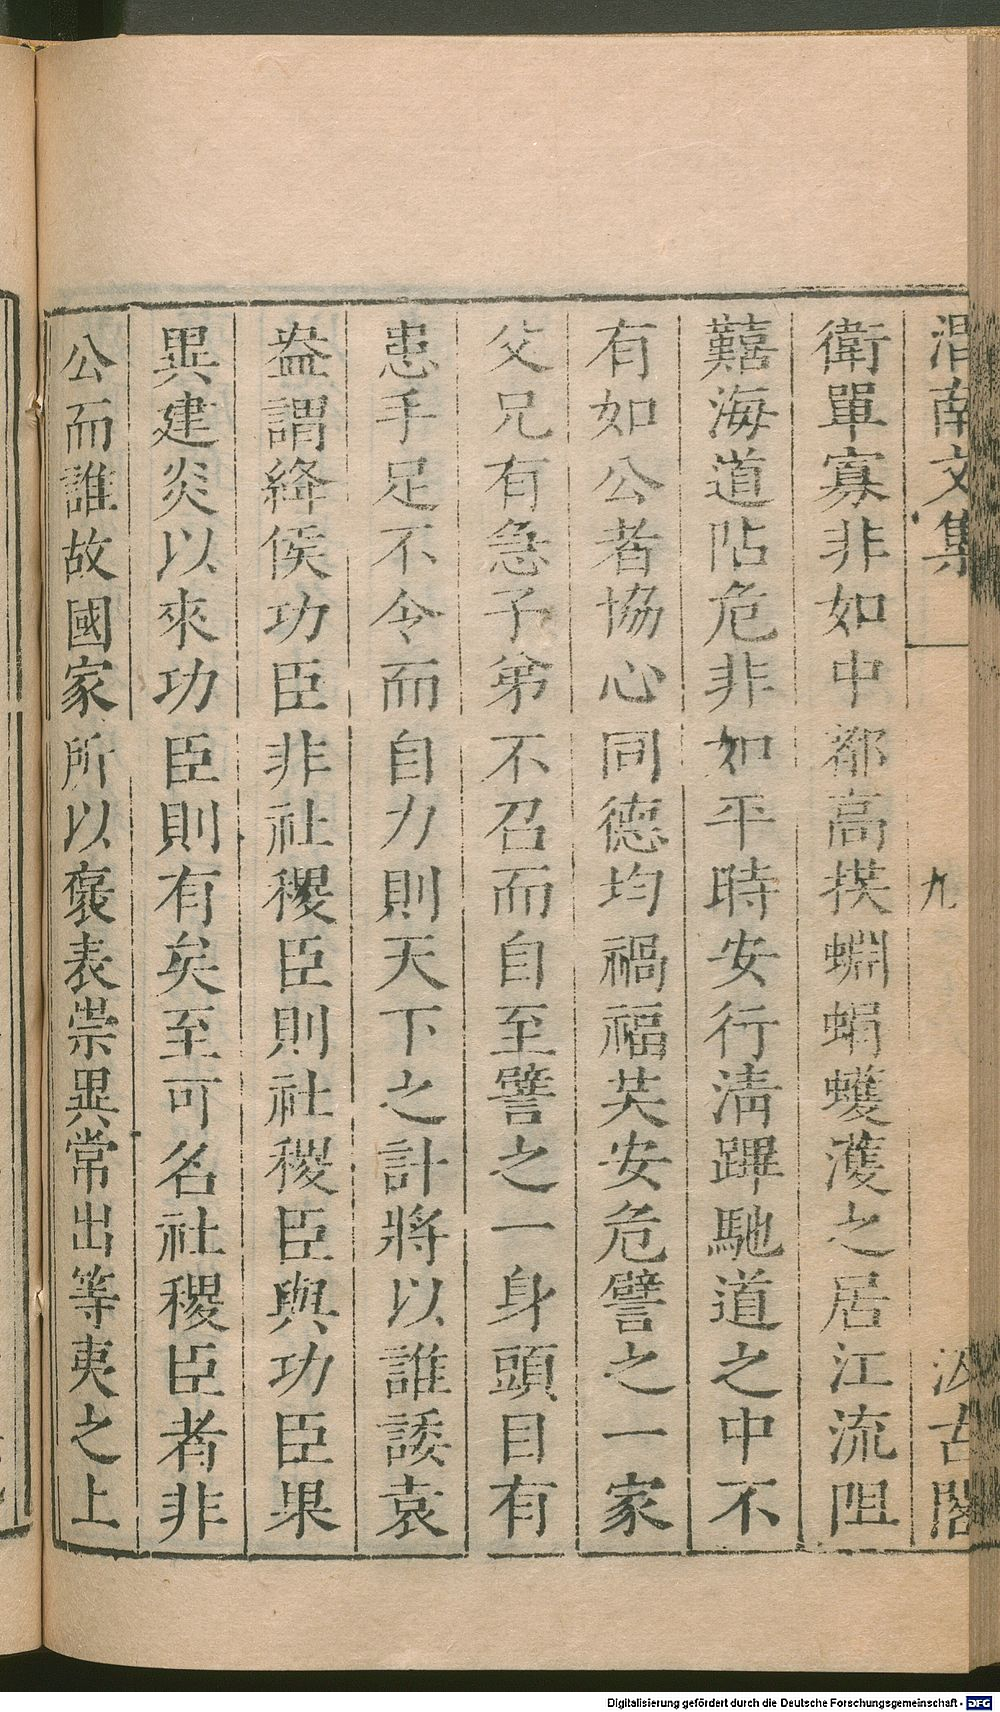 渭南文集
九
汲古閣
衛單寡非如中都高㧞蜵蜎蠖濩之居江流阻
囏海道阽危非如平時安行淸蹕馳道之中不
有如公者協心同德均禍福共安危譬之一家
父兄有急子弟不召而自至譬之一身頭目有
患手足不令而自力則天下之計將以誰諉袁
盎謂絳侯功臣非社稷臣則社稷臣與功臣果
異建炎以來功臣則有矣至可名社稷臣者非
公而誰故國家所以褒表崇異常出等夷之上
Digitalisierung gefördert durch die Deutsche Forschungsgemeinschaft - DFG